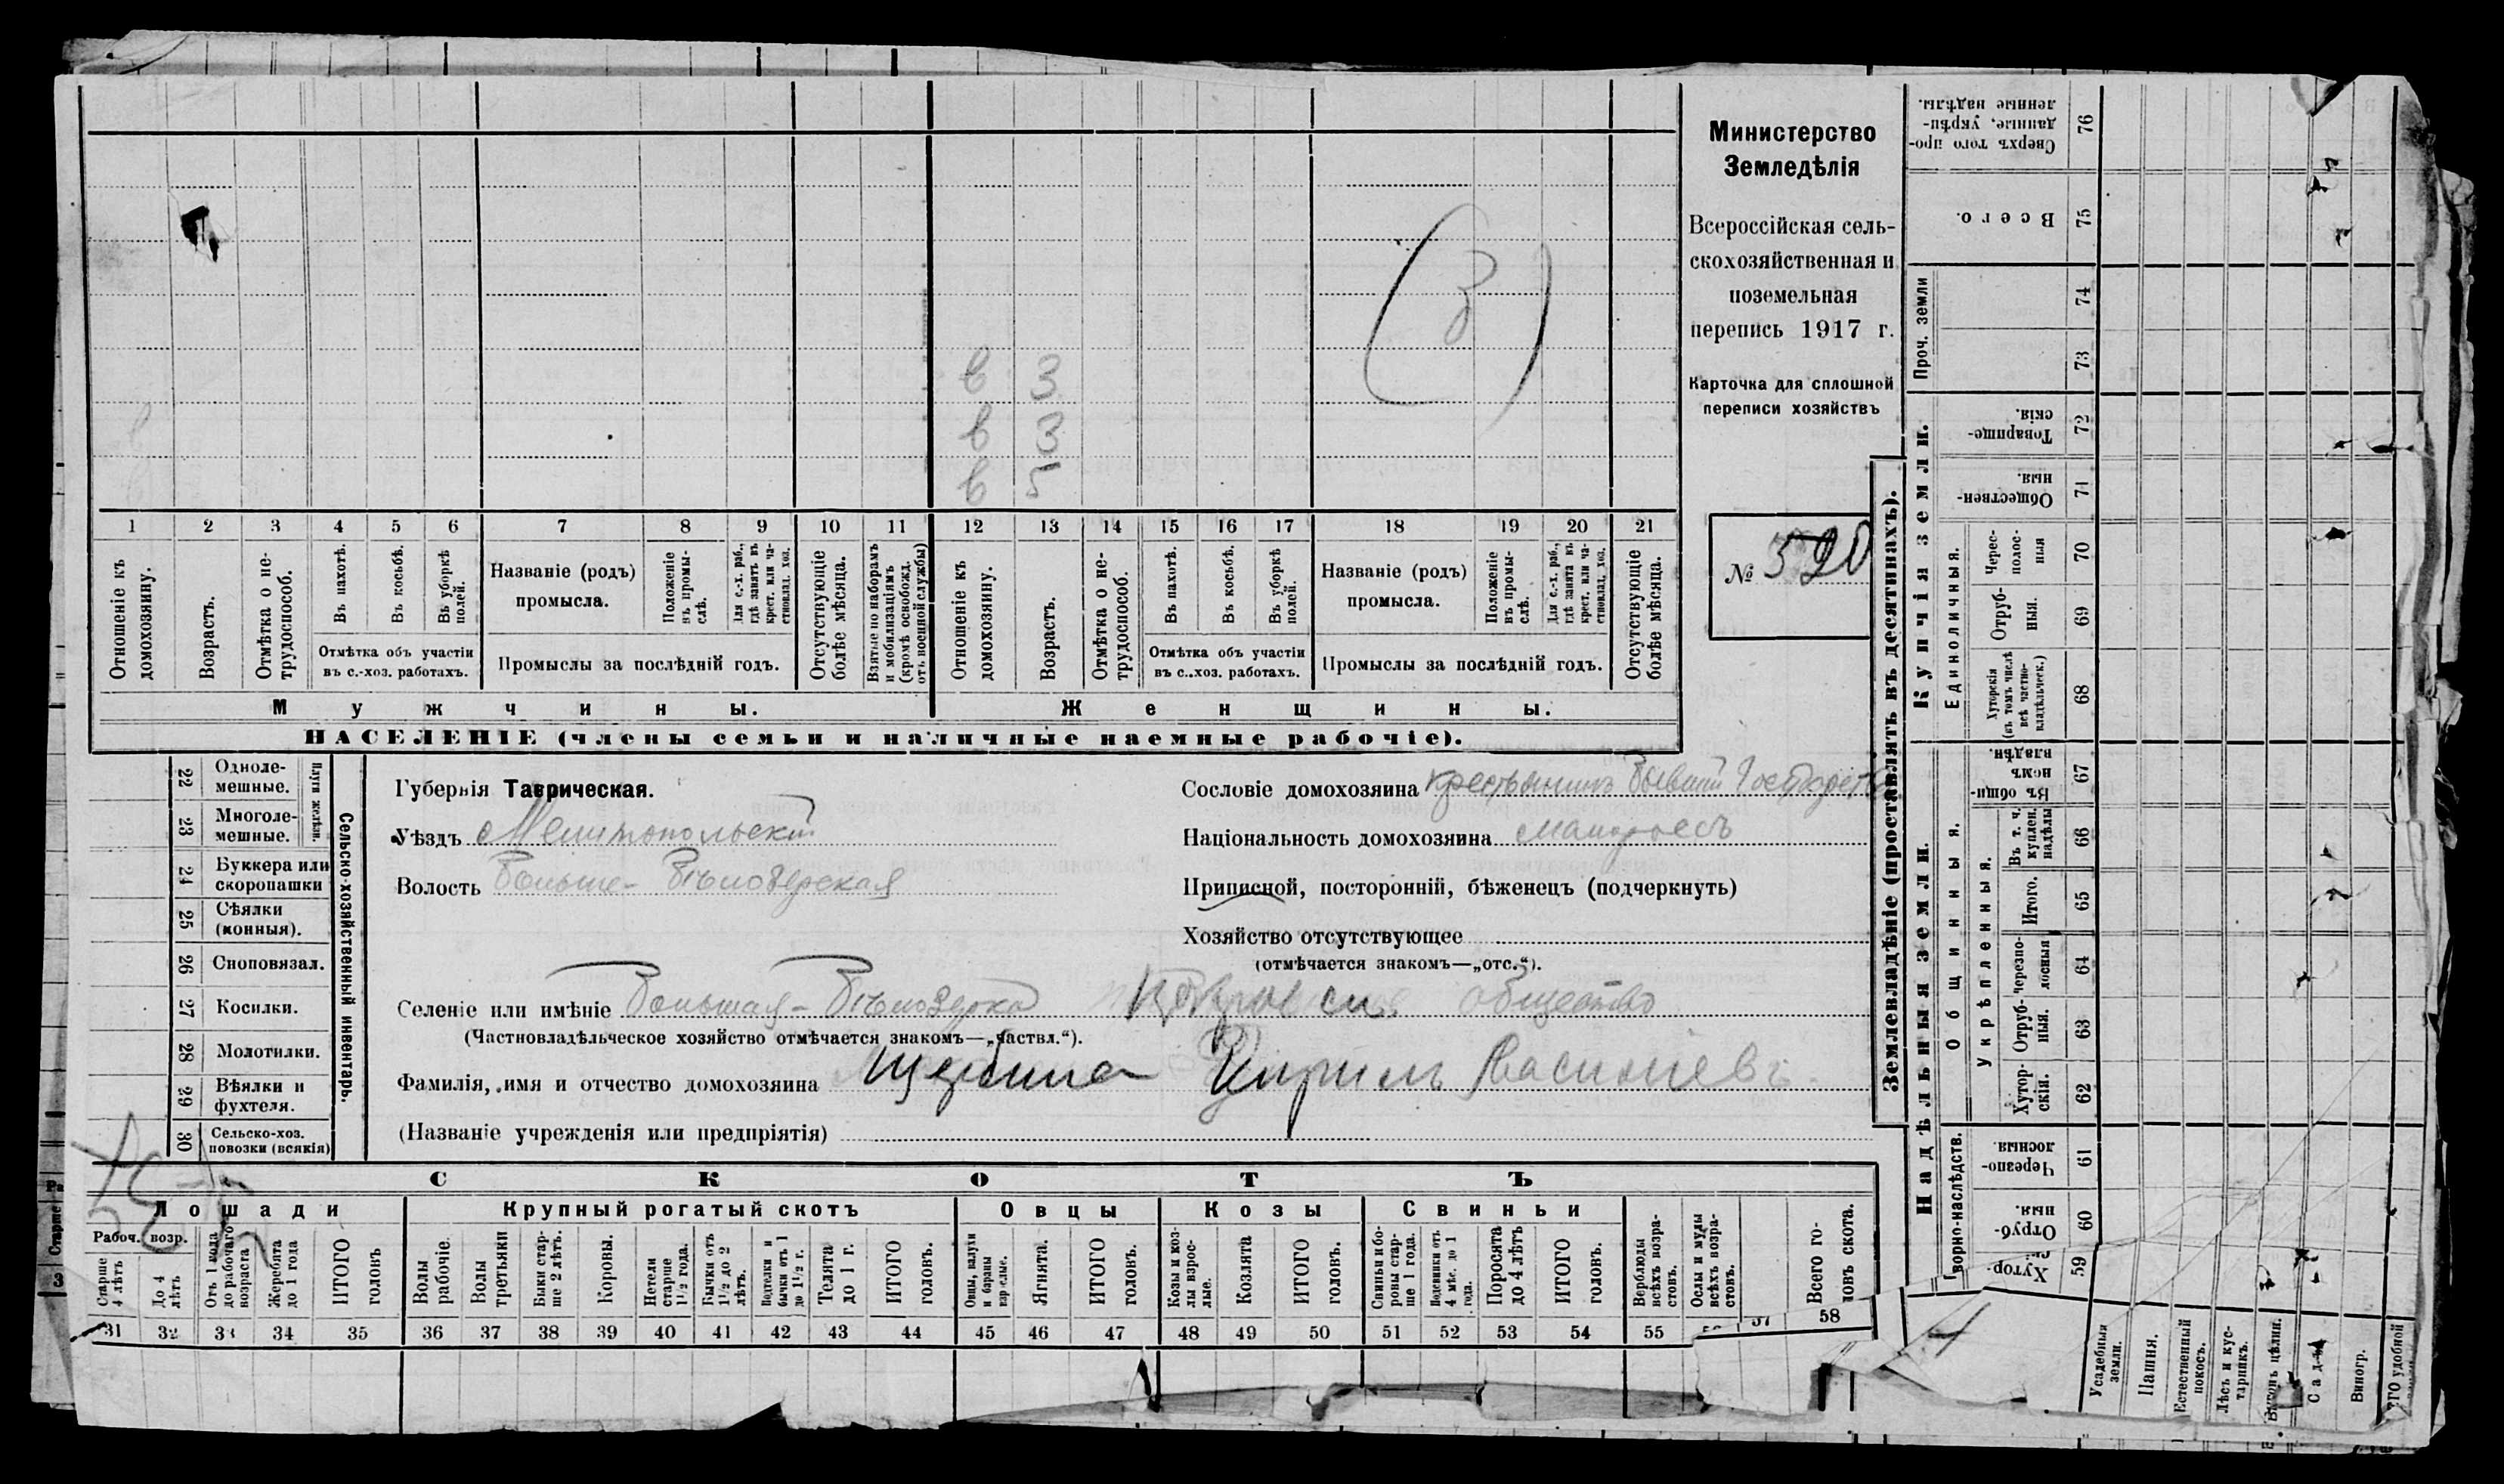 Министерство
Земледѣлія
Всероссійская сель-
скохозяйственная и
поземельная
перепись 1917 г.
Карточка для сплошной
переписи хозяйствъ
№ 520
в 3
в 3
в 5
(3)
1 2 3 4 5 6 7 8 9 10 11 12 13 14 15 16 17 18 19 20 21
Отношеніе къ домохозяину.
Возрастъ.
Отмѣтка о не-трудоспособ.
Въ пахотѣ.
Въ косьбѣ.
Въ уборкѣ полей.
Отмѣтка объ участіи
въ с.-хоз. работахъ.
Названіе (родъ)
промысла.
Положеніе въ промы-слѣ.
Для с.-х. раб., гдѣ занятъ въ крест. или ча-стновлад. хоз.
Промыслы за послѣдній годъ.
Отсутствующіе болѣе мѣсяца.
Взятые по наборамъ и мобилизаціямъ (кромѣ освобожд. отъ военной службы)
Отношеніе къ домохозяину.
Возрастъ.
Отмѣтка о не-трудоспособ.
Въ пахотѣ.
Въ косьбѣ.
Въ уборкѣ полей.
Отмѣтка объ участіи
въ с..хоз. работахъ.
Названіе (родъ)
промысла.
Положеніе въ промы-слѣ.
Для с.-х. раб., гдѣ занята въ крест. или ча-стновлад. хоз.
Промыслы за послѣдній годъ.
Отсутствующіе болѣе мѣсяца.
Мужчины. Женщины.
НАСЕЛЕНІЕ (члены семьи и наличные наемные рабочіе).
Сельско-хозяйственный инвентарь.
Плуги желѣзн.
22 Одноле-мешные.
23 Многоле-мешные.
24 Буккера или скоропашки
25 Сѣялки (конныя).
26 Сноповязал.
27 Косилки.
28 Молотилки.
29 Вѣялки и фухтеля.
30 Сельско-хоз. повозки (всякія)
Губернія Таврическая.
Уѣздъ Мелитопольскій
Волость Больше-Бѣлозерская
Сословіе домохозяина крестьянинъ бывшій
Національность домохозяина малороссъ
Приписной, посторонній, бѣженецъ (подчеркнуть)
Хозяйство отсутствующее
(отмѣчается знакомъ—„отс.“).
Селеніе или имѣніе Большая-Бѣлозерка общество
(Частновладѣльческое хозяйство отмѣчается знакомъ—„частвл.“).
Фамилія, имя и отчество домохозяина Щербина Кирилъ Васильевъ
(Названіе учрежденія или предпріятія)
СКОТЪ
Лошади Крупный рогатый скотъ Овцы Козы Свиньи
Рабоч. возр.
Старше 4 лѣтъ
До 4 лѣтъ
Отъ 1 года до рабочаго возраста
Жеребята до 1 года
ИТОГО головъ
Волы рабочіе.
Волы третьяки
Быки стар-ше 2 лѣтъ.
Коровы.
Нетели старше 1½ года.
Бычки отъ 1½ до 2 лѣтъ.
Подтелки и бычки отъ 1 до 1½ г.
Телята до 1 г.
ИТОГО головъ.
Овцы, валухи и бараны взрослые.
Ягнята.
ИТОГО головъ.
Козы и коз-лы взрос-лые.
Козлята
ИТОГО головъ.
Свиньи и бо-ровы стар-ше 1 года.
Подсвинки отъ 4 мѣс. до 1 года.
Поросята до 4 лѣтъ
ИТОГО головъ.
Верблюды всѣхъ возра-стовъ.
Ослы и мулы всѣхъ возра-стовъ.
Всего го-ловъ скота.
31 32 33 34 35 36 37 38 39 40 41 42 43 44 45 46 47 48 49 50 51 52 53 54 55 57 58
Землевладѣніе (проставлять въ десятинахъ).
Купчія земли.
Проч. земли
Единоличныя.
Сверхъ того про-данные, укрѣп-ленные надѣлы. 76
Всего. 75
74
73
Товарище-скія. 72
Обществен-ныя. 71
Черес-полос-ныя 70
Отруб-ныя. 69
Хуторскія (въ томъ числѣ всѣ частно-владѣльческ.) 68
Надѣльныя земли.
Общинныя.
Укрѣпленныя.
Въ общи-номъ владѣн. 67
Въ т. ч. куплен. надѣлы 66
Итого. 65
Черезпо-лосныя 64
Отруб-ныя. 63
Хутор-скія. 62
Дворно-наслѣдств.
Черезпо-лосныя. 61
Отруб-ныя. 60
Хутор- 59
Усадебныя земли.
Пашня.
Естественный покосъ.
Лѣсъ и кус-тарникъ.
Садъ
Виногр.